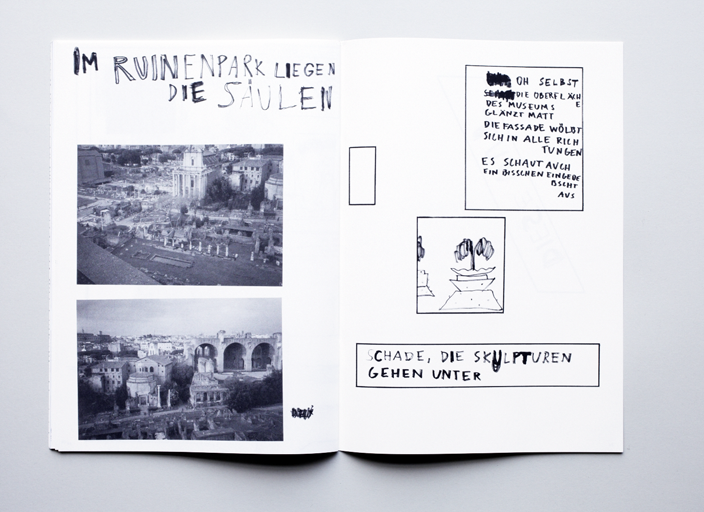 IM RUINENPARK LIEGEN
DIE SÄULEN
OH SELBST
DIE OBERFLÄCH
DES MUSEUMS E
GLÄNZT MATT
DIE FASSADE WÖLBT
SICH IN ALLE RICH
TUNGEN
ES SCHAUT AUCH
EIN BISSCHEN EINGEBE
BSCHT
AUS
SCHADE, DIE SKULPTUREN
GEHEN UNTER